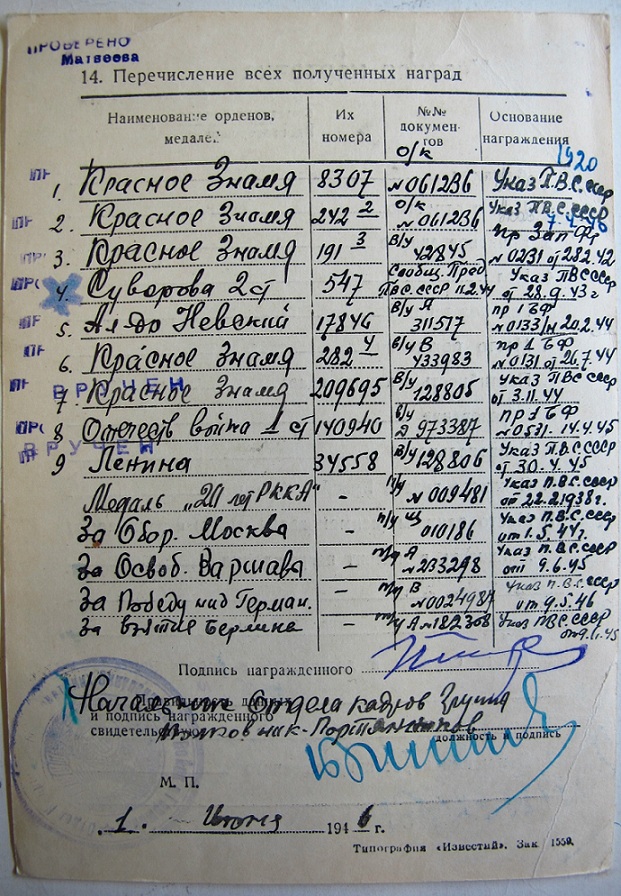 ПРОВЕРЕНО
Матвеева
14. Перечисление всех полученных наград
Наименование орденов, медале. Их номера №№ докумен-тов о/к Основание награждения
1920
1. Красное Знамя 8307 №061236 Указ П.В.С. СССР
2. Красное Знамя 242 2 о/к №061236 Указ ПВС СССР 7.4.46
3. Красное Знамя 191 3 В/У 42845 пр Зап Фр №0231 от 28.2.42
4. Суворова 2 ст 547 Сообщ. Пред ПВС. СССР 11.2.44 Указ ПВС СССР от 28.9.43 г
5. Ал-др Невский 17846 В/у А 311517 пр 1 БФ №0133/н 20.2.44
6. Красное Знамя 282 4 в/у В 433983 пр 1 БФ №0131 от 26.7.44
ВРУЧЕН
7 Красное Знамя 209695 В/у 128805 Указ ПВС СССР от 3.11.44
8 Отечеств война 1 ст 140940 в/у 973387 пр 1 БФ №0531 - 14.4.45
ВРУЧЕН
9 Ленина 34558 В/у 128806 Указ П.В.С. СССР от 30.4.45
Медаль „20 лет РККА“ - п/у №009481 Указ П.В.С. СССР от 22.2.1938 г.
За Обор. Москва - п/у Щ 010186 Указ П.В.С. СССР от 1.5.44 г.
За Освоб. Варшава - А №233298 Указ П.В.С. СССР от 9.6.45
За Победу над Герман. - В №0024987 Указ П.В.С. СССР от 9.5.46
За взятие Берлина - А №182308 Указ ПВС СССР
Подпись награжденного
Начальник Отдела кадров
и подпись награжденного
свидетельствую
должность и подпись
М. П.
„1. Июня 1946 г.
Типография «Известий». Зак 1559.